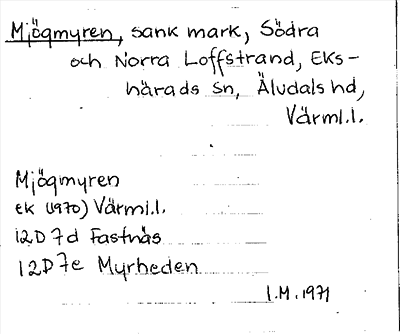 Mjögmyren, sank mark, Södra
och Norra Loffstrand, Eks-
härads sn, Älvdals hd,
Värml.l.
Mjögmyren
ek (1970) Värml.l.
12D 7d Fastnäs
12D 7e Myrheden
I.M. 1971